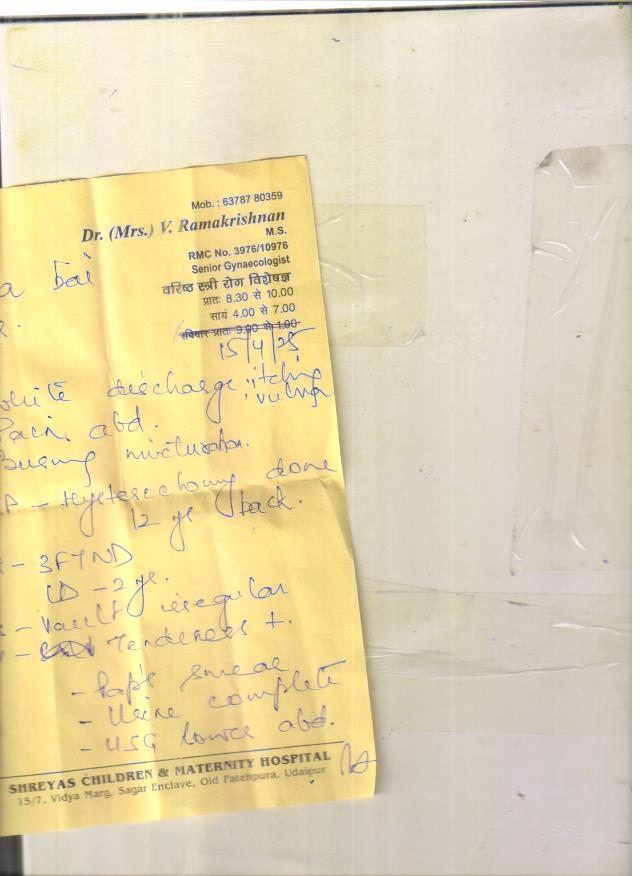 Mob. : 63787 80359
Dr. (Mrs.) V. Ramakrishnan
M.S.
RMC No. 3976/10976
Senior Gynaecologist
वरिष्ठ स्त्री रोग विशेषज्ञ
प्रातः 8.30 से 10.00
सायं 4.00 से 7.00
रविवार प्रातः 9.00 से 1.00
a bai
15/4/25
white discharge, itching
vulva
Pain abd.
Burning micturation.
P - Hysterectomy done
12 ys back.
- 3FTND
LD - 2 ys.
- Vault irregular
- Tenderness +.
- Pap's smear
- Urine complete
- USG lower abd.
SHREYAS CHILDREN & MATERNITY HOSPITAL
15/7, Vidya Marg, Sagar Enclave, Old Fatehpura, Udaipur